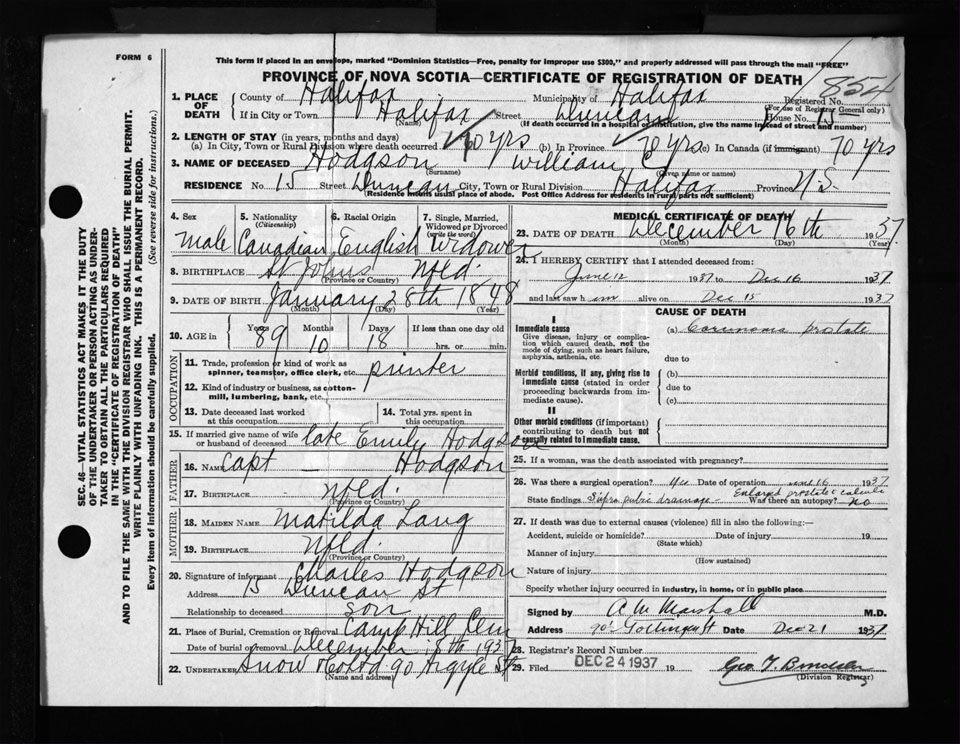 FORM 6
This form if placed in an envelope, marked "Dominion Statistics—Free, penalty for improper use $300," and properly addressed will pass through the mail "FREE"
PROVINCE OF NOVA SCOTIA—CERTIFICATE OF REGISTRATION OF DEATH
854
Registered No.
(For use of Registrar General only)
1. PLACE OF DEATH
County of Halifax Municipality of Halifax
If in City or Town Halifax Street Duncan House No. 15
(Name) (If death occurred in a hospital or institution, give the name instead of street and number)
2. LENGTH OF STAY (in years, months and days)
(a) In City, Town or Rural Division where death occurred 70 yrs (b) In Province 70 yrs (c) In Canada (if immigrant) 70 yrs
3. NAME OF DECEASED Hodgson William C
(Surname) (Given name or names)
RESIDENCE No. 15 Street Duncan City, Town or Rural Division Halifax Province N.S.
(Residence means usual place of abode. Post Office Address for residents in rural parts not sufficient)
4. Sex
male
5. Nationality
(Citizenship)
Canadian
6. Racial Origin
English
7. Single, Married, Widowed or Divorced
(write the word)
Widower
8. BIRTHPLACE St Johns Nfld.
(Province or Country)
9. DATE OF BIRTH January 28th 1848
(Month) (Day) (Year)
10. AGE in
Years 89 Months 10 Days 18
If less than one day old
hrs. or min.
OCCUPATION
11. Trade, profession or kind of work as spinner, teamster, office clerk, etc. printer
12. Kind of industry or business, as cotton-mill, lumbering, bank, etc.
13. Date deceased last worked at this occupation
14. Total yrs. spent in this occupation
15. If married give name of wife or husband of deceased late Emily Hodgson
FATHER
16. NAME Capt — Hodgson
17. BIRTHPLACE Nfld.
(Province or Country)
MOTHER
18. MAIDEN NAME Matilda Lang
19. BIRTHPLACE Nfld.
(Province or Country)
20. Signature of informant Charles Hodgson
Address 15 Duncan St
Relationship to deceased son
21. Place of Burial, Cremation or Removal Camp Hill Cem
Date of burial or removal December 18th 1937
22. UNDERTAKER Snow & Co Ltd 90 Argyle St
(Name and address)
MEDICAL CERTIFICATE OF DEATH
23. DATE OF DEATH December 16th 1937
(Month) (Day) (Year)
24. I HEREBY CERTIFY that I attended deceased from:
June 12 1937 to Dec 16 1937
and last saw him alive on Dec 15 1937
CAUSE OF DEATH
I
Immediate cause
Give disease, injury or complication which caused death, not the mode of dying, such as heart failure, asphyxia, asthenia, etc.
(a) Carcinoma prostate
due to
Morbid conditions, if any, giving rise to immediate cause (stated in order proceeding backwards from immediate cause).
(b)
due to
(c)
II
Other morbid conditions (if important) contributing to death but not causally related to immediate cause.
25. If a woman, was the death associated with pregnancy?
26. Was there a surgical operation? Yes Date of operation 16 1937
State findings Supra pubic drainage - Enlarged prostate & calculi Was there an autopsy? no
27. If death was due to external causes (violence) fill in also the following:—
Accident, suicide or homicide? Date of injury 19
(State which)
Manner of injury
(How sustained)
Nature of injury
Specify whether injury occurred in industry, in home, or in public place
Signed by A M Marshall M.D.
Address Gottingen St Date Dec 21 1937
28. Registrar's Record Number
29. Filed DEC 24 1937 19
Geo. F.
(Division Registrar)
SEC. 46—VITAL STATISTICS ACT MAKES IT THE DUTY
OF THE UNDERTAKER OR PERSON ACTING AS UNDER-
TAKER TO OBTAIN ALL THE PARTICULARS REQUIRED
IN THE "CERTIFICATE OF REGISTRATION OF DEATH"
AND TO FILE THE SAME WITH THE DIVISION REGISTRAR WHO SHALL ISSUE THE BURIAL PERMIT.
WRITE PLAINLY WITH UNFADING INK. THIS IS A PERMANENT RECORD.
Every item of information should be carefully supplied. (See reverse side for instructions.)